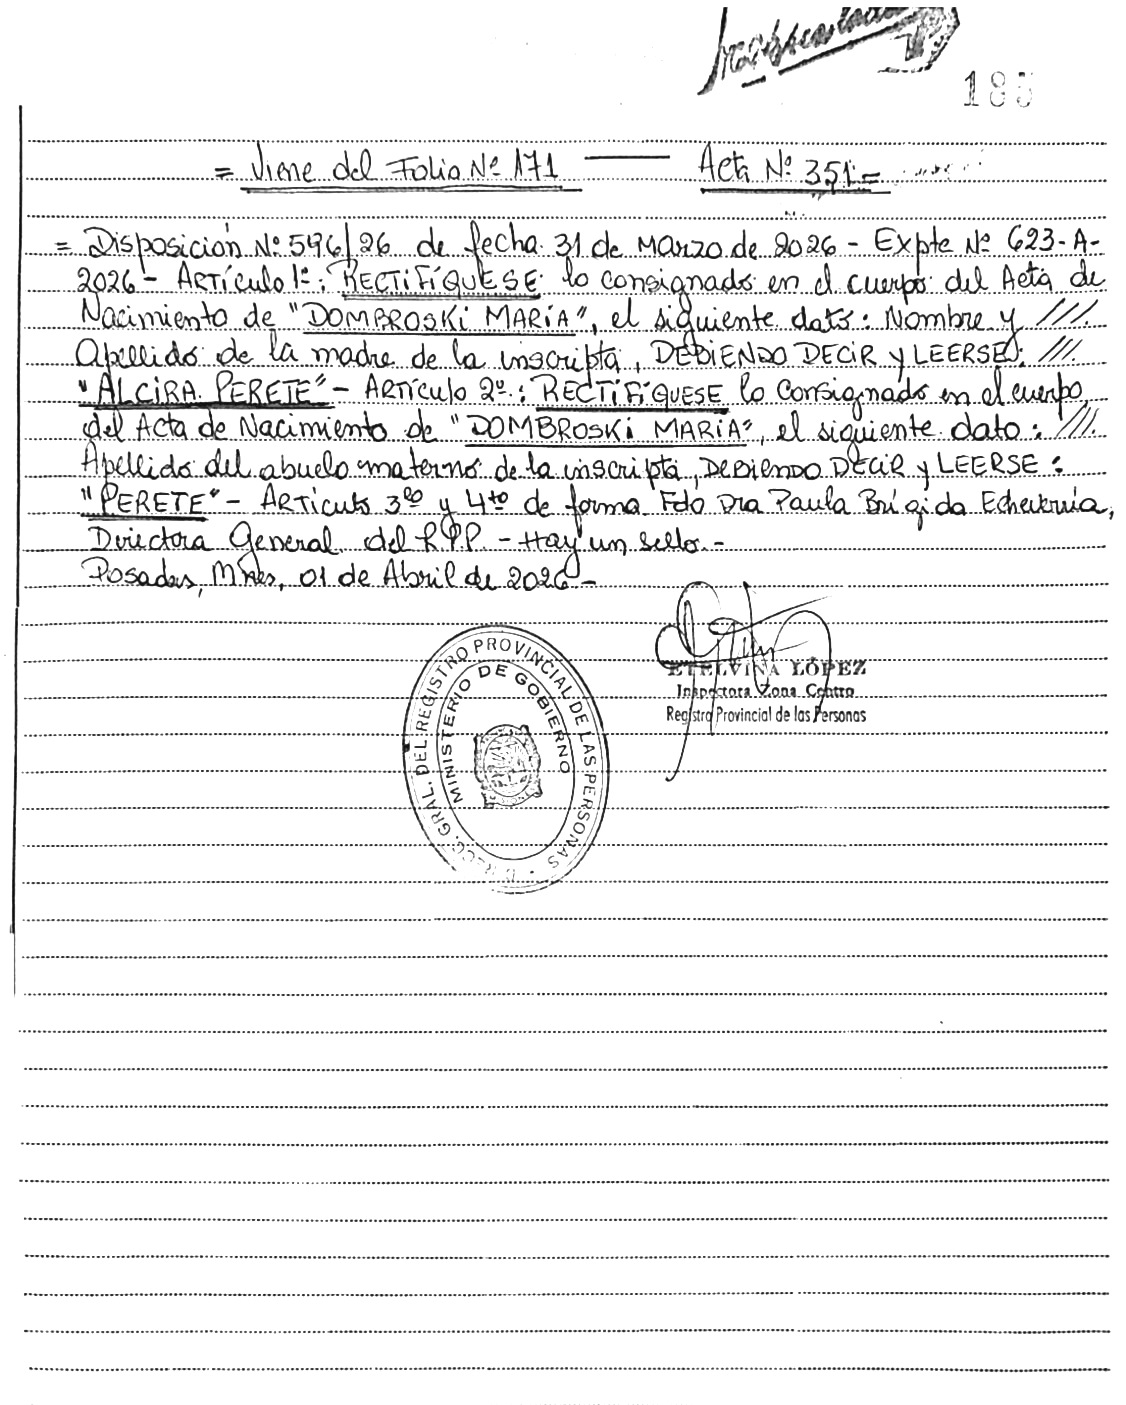 185
= Viene del Folio Nº 171 —— Acta Nº 351 =
= Disposición Nº 596/26 de fecha 31 de Marzo de 2026 - Expte Nº 623-A-
2026 - Artículo 1º: RECTIFÍQUESE lo consignado en el cuerpo del Acta de
Nacimiento de "DOMBROSKI MARÍA", el siguiente dato: Nombre y ///.
Apellido de la madre de la inscripta, DEBIENDO DECIR y LEERSE: ///.
"ALCIRA PERETE" - Artículo 2º: RECTIFÍQUESE lo consignado en el cuerpo
del Acta de Nacimiento de "DOMBROSKI MARIA", el siguiente dato: ///.
Apellido del abuelo materno de la inscripta, DEBIENDO DECIR y LEERSE:
"PERETE" - Artículo 3ro y 4to de forma Fdo Dra Paula Brígida Echeverria,
Directora General del R.P.P. - Hay un sello.-
Posadas, Mnes, 01 de Abril de 2026 -
ETELVINA LÓPEZ
Inspectora Zona Centro
Registro Provincial de las Personas
DIRECC. GRAL. DEL REGISTRO PROVINCIAL DE LAS PERSONAS
MINISTERIO DE GOBIERNO